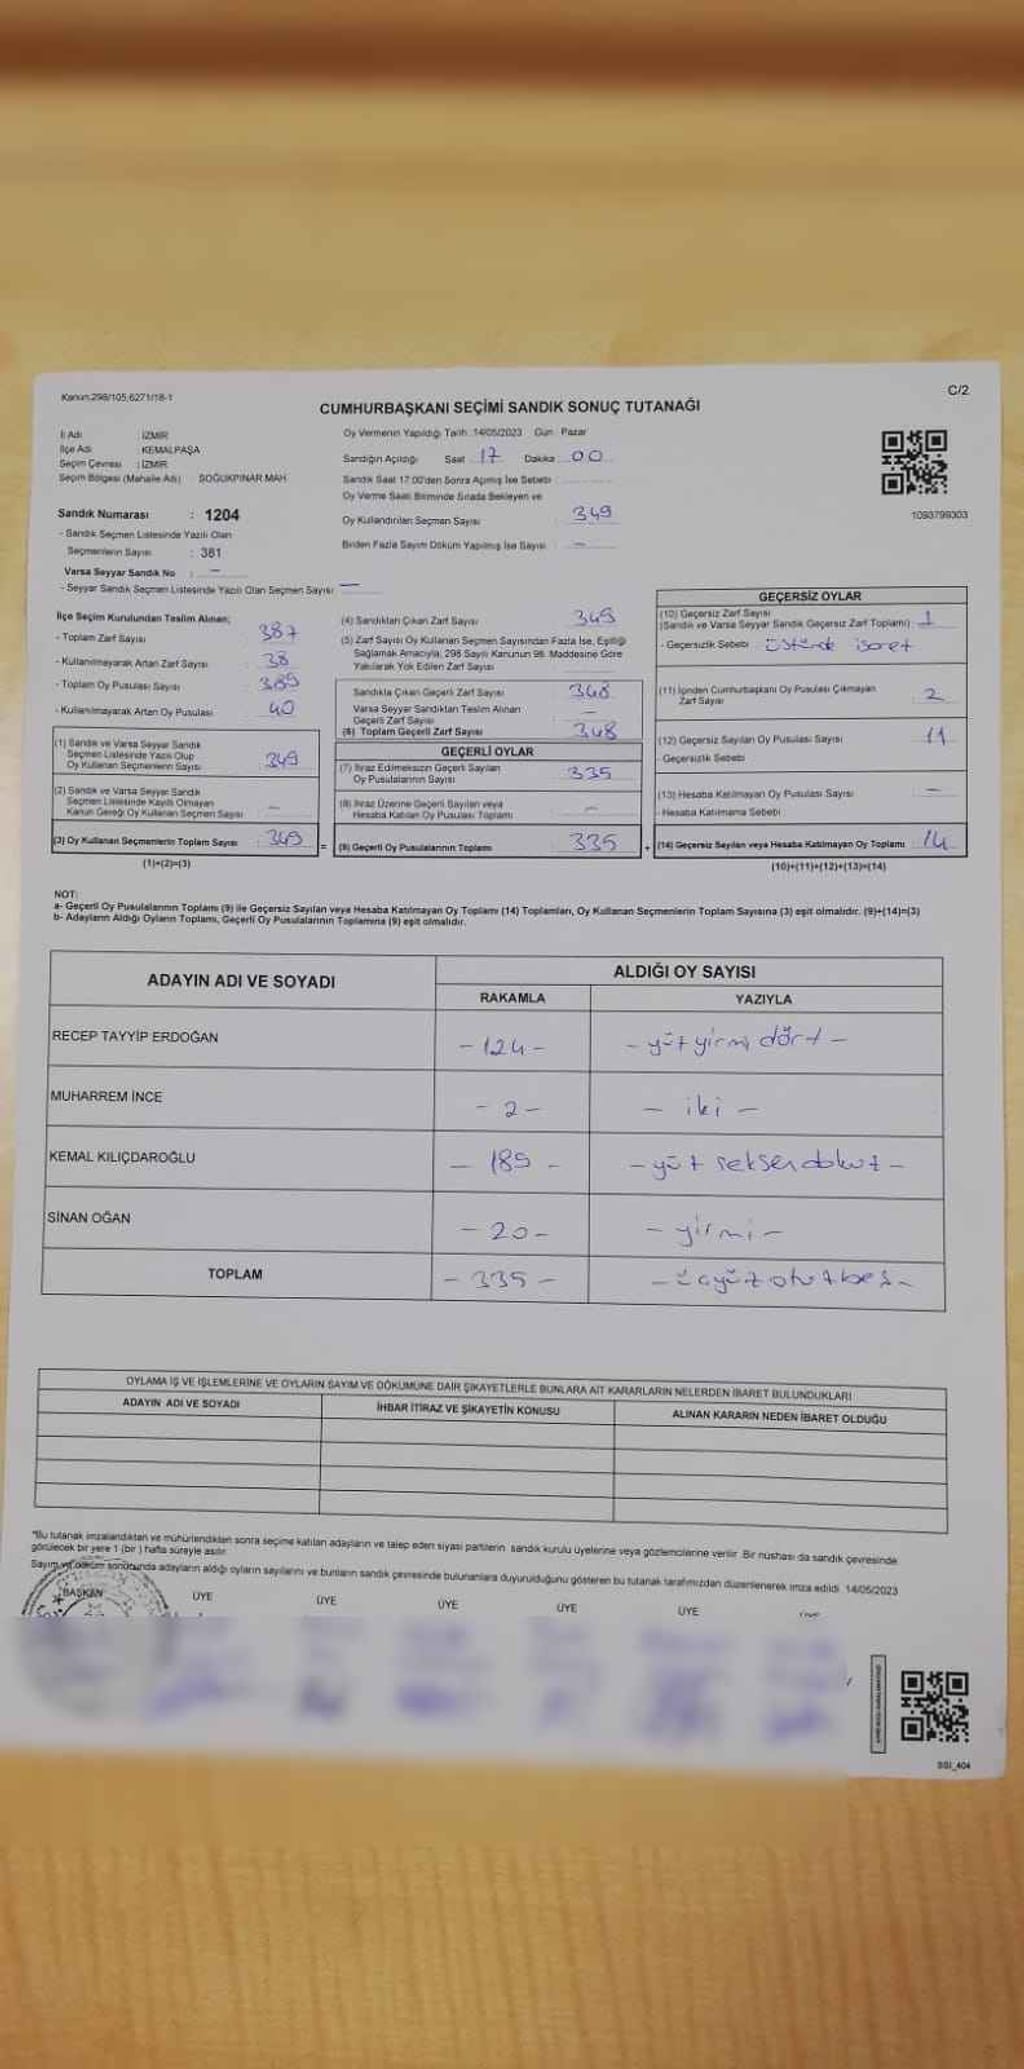 Kanun:298/105;6271/18-1
C/2
CUMHURBAŞKANI SEÇİMİ SANDIK SONUÇ TUTANAĞI
İl Adı : İZMİR
İlçe Adı : KEMALPAŞA
Seçim Çevresi : İZMİR
Seçim Bölgesi (Mahalle Adı) SOĞUKPINAR MAH.
Sandık Numarası : 1204
- Sandık Seçmen Listesinde Yazılı Olan
Seçmenlerin Sayısı : 381
Varsa Seyyar Sandık No : —
- Seyyar Sandık Seçmen Listesinde Yazılı Olan Seçmen Sayısı —
Oy Vermenin Yapıldığı Tarih :14/05/2023 Gün : Pazar
Sandığın Açıldığı Saat : 17 Dakika : 00
Sandık Saat 17:00'den Sonra Açılmış İse Sebebi :
Oy Verme Saati Bitiminde Sırada Bekleyen ve
Oy Kullandırılan Seçmen Sayısı : 349
Birden Fazla Sayım Döküm Yapılmış İse Sayısı : —
1093799303
İlçe Seçim Kurulundan Teslim Alınan;
- Toplam Zarf Sayısı : 387
- Kullanılmayarak Artan Zarf Sayısı : 38
- Toplam Oy Pusulası Sayısı : 389
- Kullanılmayarak Artan Oy Pusulası : 40
(1) Sandık ve Varsa Seyyar Sandık
Seçmen Listesinde Yazılı Olup
Oy Kullanan Seçmenlerin Sayısı : 349
(2) Sandık ve Varsa Seyyar Sandık
Seçmen Listesinde Kayıtlı Olmayan
Kanun Gereği Oy Kullanan Seçmen Sayısı : —
(3) Oy Kullanan Seçmenlerin Toplam Sayısı : 349
(1)+(2)=(3)
(4) Sandıktan Çıkan Zarf Sayısı : 349
(5) Zarf Sayısı Oy Kullanan Seçmen Sayısından Fazla İse, Eşitliği
Sağlamak Amacıyla, 298 Sayılı Kanunun 98. Maddesine Göre
Yakılarak Yok Edilen Zarf Sayısı
Sandıkta Çıkan Geçerli Zarf Sayısı : 348
Varsa Seyyar Sandıktan Teslim Alınan
Geçerli Zarf Sayısı : —
(6) Toplam Geçerli Zarf Sayısı : 348
GEÇERLİ OYLAR
(7) İtiraz Edilmeksizin Geçerli Sayılan
Oy Pusulalarının Sayısı : 335
(8) İtiraz Üzerine Geçerli Sayılan veya
Hesaba Katılan Oy Pusulası Toplamı : —
= (9) Geçerli Oy Pusulalarının Toplamı : 335
GEÇERSİZ OYLAR
(10) Geçersiz Zarf Sayısı
(Sandık ve Varsa Seyyar Sandık Geçersiz Zarf Toplamı) : 1
- Geçersizlik Sebebi : üstünde işaret
(11) İçinden Cumhurbaşkanı Oy Pusulası Çıkmayan
Zarf Sayısı : 2
(12) Geçersiz Sayılan Oy Pusulası Sayısı : 11
- Geçersizlik Sebebi :
(13) Hesaba Katılmayan Oy Pusulası Sayısı : —
- Hesaba Katılmama Sebebi :
+ (14) Geçersiz Sayılan veya Hesaba Katılmayan Oy Toplamı : 14
(10)+(11)+(12)+(13)=(14)
NOT:
a- Geçerli Oy Pusulalarının Toplamı (9) ile Geçersiz Sayılan veya Hesaba Katılmayan Oy Toplamı (14) Toplamları, Oy Kullanan Seçmenlerin Toplam Sayısına (3) eşit olmalıdır. (9)+(14)=(3)
b- Adayların Aldığı Oyların Toplamı, Geçerli Oy Pusulalarının Toplamına (9) eşit olmalıdır.
ADAYIN ADI VE SOYADI
ALDIĞI OY SAYISI
RAKAMLA YAZIYLA
RECEP TAYYİP ERDOĞAN -124- - yüzyirmi dört -
MUHARREM İNCE -2- - iki -
KEMAL KILIÇDAROĞLU - 189 - - yüz seksendokuz -
SİNAN OĞAN -20- - yirmi -
TOPLAM - 335 - - üçyüzotuzbeş -
OYLAMA İŞ VE İŞLEMLERİNE VE OYLARIN SAYIM VE DÖKÜMÜNE DAİR ŞİKAYETLERLE BUNLARA AİT KARARLARIN NELERDEN İBARET BULUNDUKLARI
ADAYIN ADI VE SOYADI İHBAR İTİRAZ VE ŞİKAYETİN KONUSU ALINAN KARARIN NEDEN İBARET OLDUĞU
*Bu tutanak imzalandıktan ve mühürlendikten sonra seçime katılan adayların ve talep eden siyasi partilerin sandık kurulu üyelerine veya gözlemcilerine verilir. Bir nüshası da sandık çevresinde
görülecek bir yere 1 (bir ) hafta süreyle asılır.
Sayım ve döküm sonucunda adayların aldığı oyların sayılarını ve bunların sandık çevresinde bulunanlara duyurulduğunu gösteren bu tutanak tarafımızdan düzenlenerek imza edildi. 14/05/2023
BAŞKAN ÜYE ÜYE ÜYE ÜYE ÜYE
SSI_404